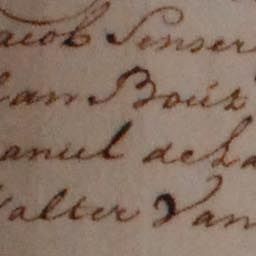 Jacob Senser
an Boúz
aniel de La
Walter Van